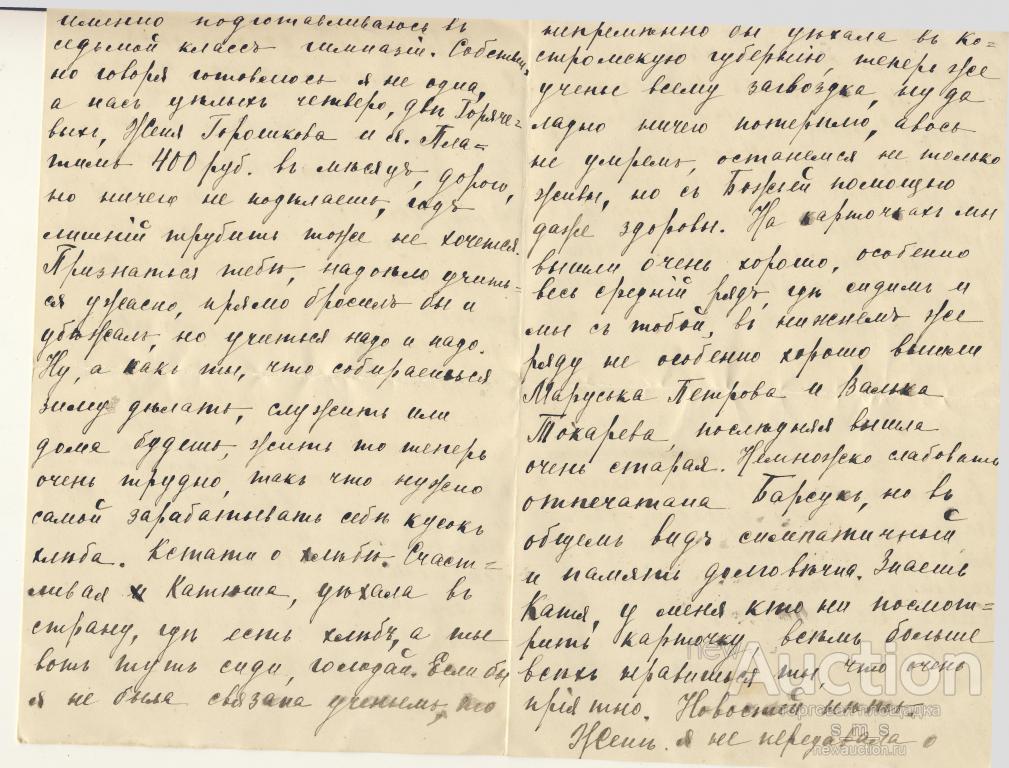 именно подготавливаюсь въ
седьмой классъ гимназіи. Собствен-
но говоря готовлюсь я не одна,
а насъ цѣлыхъ четверо, двѣ Горяче-
выхъ, Женя Горошкова и я. Пла-
тимъ 400 руб. въ мѣсяцъ, дорого,
но ничего не подѣлаешь, годъ
лишній трубить тоже не хочется.
Признаться тебѣ, надоѣло учить-
ся ужасно, прямо бросилъ бы и
убѣжалъ, но учиться надо и надо.
Ну, а какъ ты, что собираешься
зиму дѣлать, служить или
дома будешь, жить то теперь
очень трудно, такъ что нужно
самой зарабатывать себѣ кусокъ
хлѣба. Кстати о хлѣбѣ. Счаст-
ливая Катюша, уѣхала въ
страну, гдѣ есть хлѣбъ, а ты
вотъ тутъ сиди, голодай. Если бы
я не была связана ученьемъ, то
непремѣнно бы уѣхала въ ко-
стромскую губернію, теперь же
ученье всему загвоздка, ну да
ладно ничего потерплю, авось
не умремъ, останемся не только
живы, но съ Божьей помощью
даже здоровы. На карточкахъ мы
вышли очень хорошо, особенно
весь средній рядъ, гдѣ сидимъ и
мы съ тобой, въ нижнемъ же
ряду не особенно хорошо вышли
Маруська Петрова и Валька
Токарева, послѣдняя вышла
очень старая. Немножко слабовато
отпечатана Барсукъ, но въ
общемъ видъ симпатичный
и память долговѣчна. Знаешь
Катя, у меня кто ни посмот-
ритъ карточку всѣмъ больше
всѣхъ нравишься ты, что очень
пріятно. Новостей
Женѣ я не передавала о
newAuction
торговая площадка
sms
newauction.ru